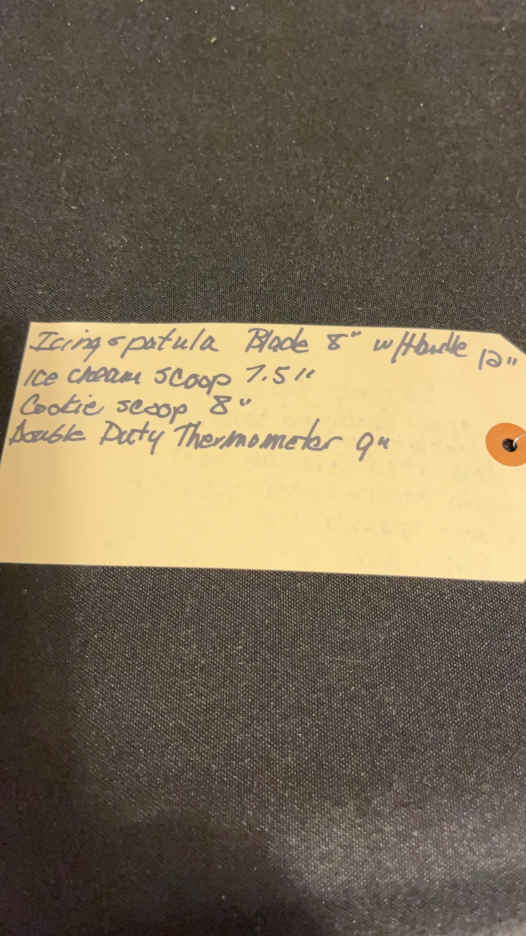 Icing spatula Blade 8" w/Handle 12"
Ice cream scoop 7.5"
Cookie scoop 8"
Double Duty Thermometer 9"